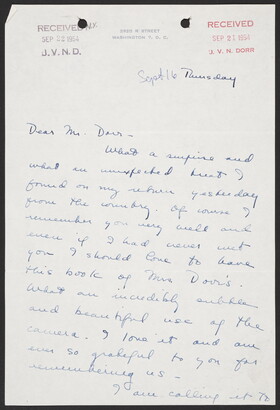 RECEIVED N.Y.
SEP 22 1954
J. V. N. D.
STREET
WASHINGTON 7, D. C.
RECEIVED
SEP 21 1954
J. V. N. DORR
Sept 16 Thursday
Dear Mr. Dorr -
What a surprise and
what an unexpected treat I
found on my return yesterday
from the country. Of course I
remember you very well and
even if I had never met
you I should love to have
this book of Mrs Dorr's.
What an incredibly subtle
and beautiful use of the
camera. I love it and am
ever so grateful to you for
remembering us -
I am calling it to